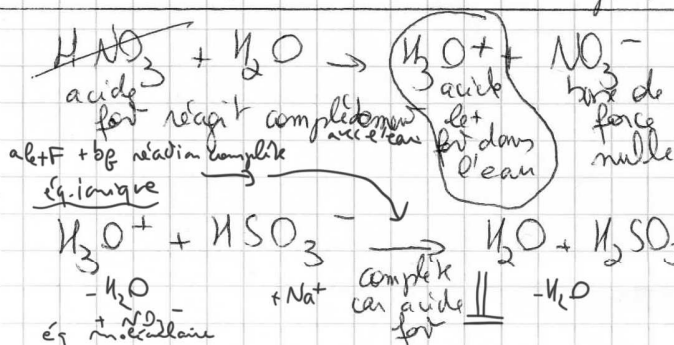 HNO₃ + H₂O → H₃O⁺ + NO₃⁻
acide fort réagit complètement avec l'eau
acide le + fort dans l'eau
base de force nulle
ale+F + bf réaction complète
éq. ionique
H₃O⁺ + HSO₃⁻ → H₂O + H₂SO₃
-H₂O + Na⁺ complète car acide fort -H₂O
+ NO₃⁻
éq moléculaire